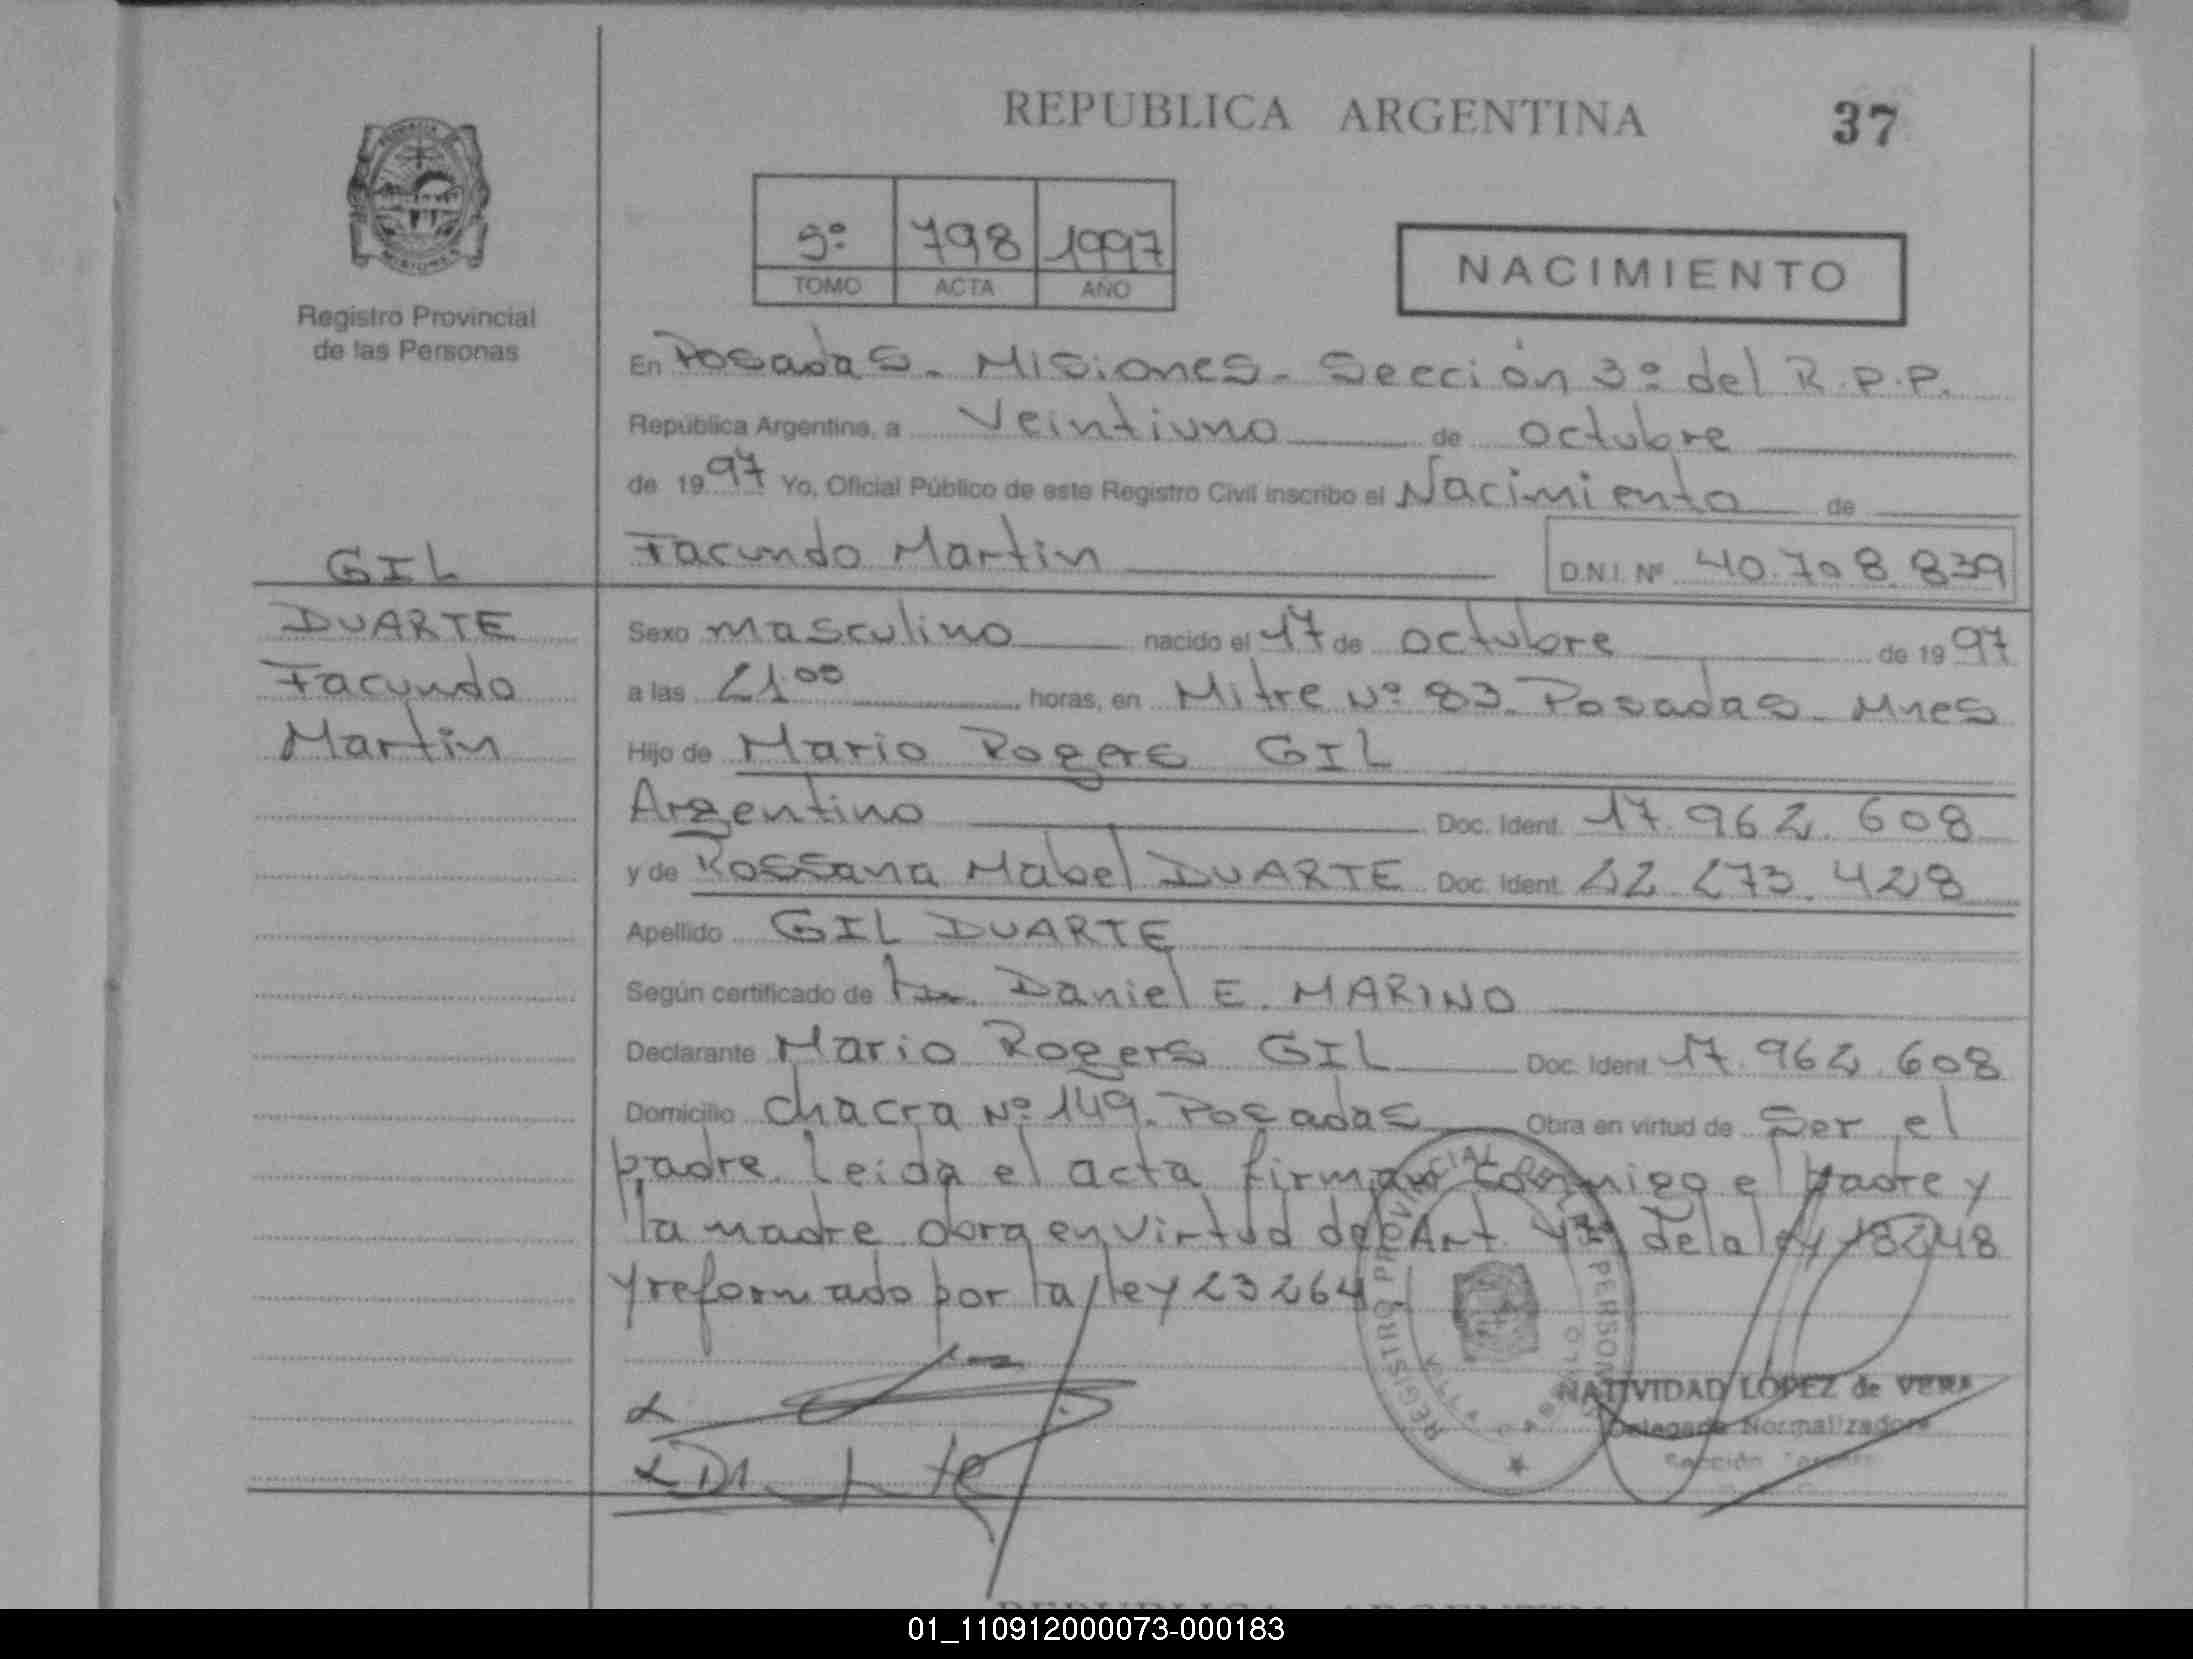 REPUBLICA ARGENTINA
37
9º 798 1997
TOMO ACTA AÑO
NACIMIENTO
Registro Provincial
de las Personas
En Posadas. Misiones. Sección 3º del R.P.P.
República Argentina, a Veintiuno de octubre
de 1997 Yo, Oficial Público de este Registro Civil inscribo el Nacimiento de
Facundo Martin
D.N.I. Nº 40.708.839
GIL
DUARTE
Facundo
Martin
Sexo masculino nacido el 17 de octubre de 1997
a las 21.00 horas, en Mitre Nº 83. Posadas. Mnes
Hijo de Mario Rogers GIL
Argentino Doc. Ident. 17.962.608
y de Rossana Mabel DUARTE Doc. Ident. 22.273.428
Apellido GIL DUARTE
Según certificado de Daniel E. MARINO
Declarante Mario Rogers GIL Doc. Ident. 17.962.608
Domicilio chacra Nº 149. Posadas Obra en virtud de Ser el
padre. leida el acta firman conmigo el padre y
la madre obra en virtud del Art. de la ley 18248
y reformado por la ley 23264
REGISTRO PROVINCIAL DE LAS PERSONAS
NATIVIDAD LOPEZ de VERA
Delegada Normalizadora
Sección
REPUBLICA ARGENTINA
01_110912000073-000183